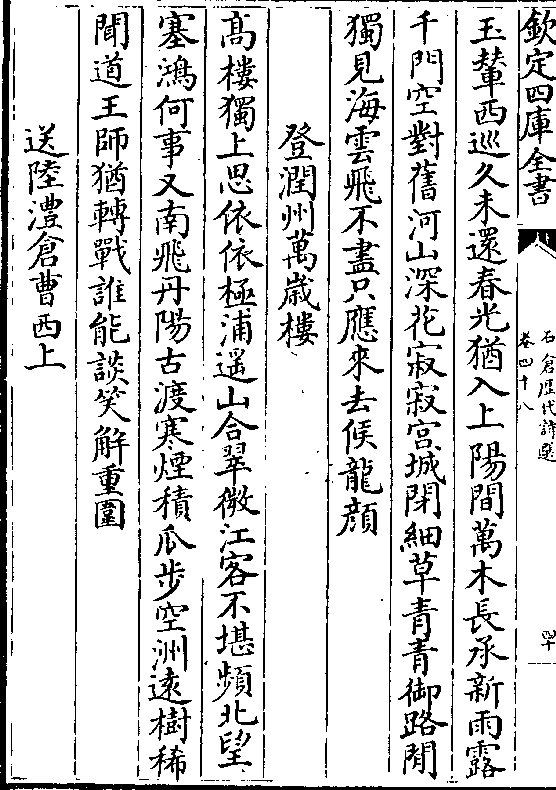 欽定四庫全書
石倉歷代詩選
卷四十八
四十
玉輦西巡久未還春光猶入上陽間萬木長承新雨露
千門空對舊河山深花寂寂宮城閉細草青青御路閒
獨見海雲飛不盡只應來去候龍顔
登潤州萬歲樓
髙樓獨上思依依極浦遥山合翠微江客不堪頻北望
塞鴻何事又南飛丹陽古渡寒煙積瓜步空洲逺樹稀
聞道王師猶轉戰誰能談笑解重圍
送陸澧倉曹西上